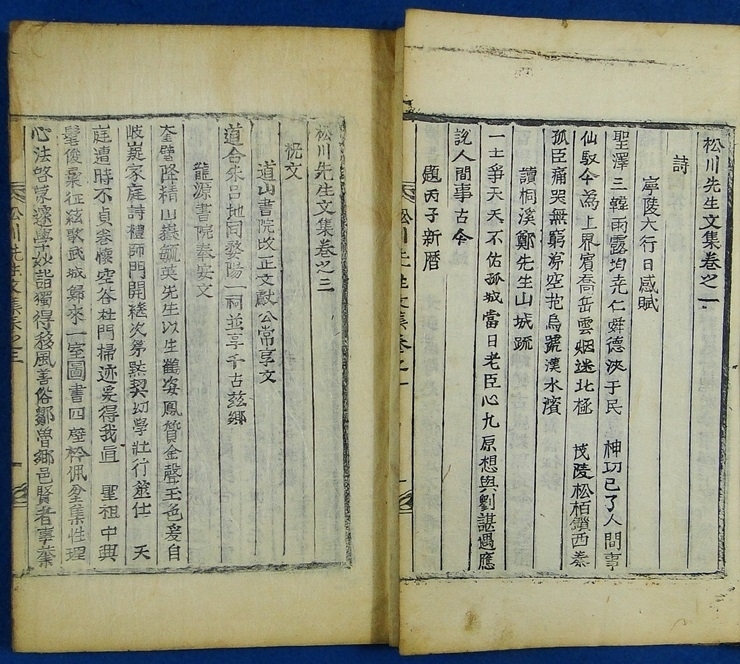 松川先生文集卷之一
詩
寧陵大行日感賦
聖澤三韓雨露均堯仁舜德浹于民 神功已了人間事
仙馭今為上界賓喬岳雲烟迷北極 茂陵松栢鎖西秦
孤臣痛哭無窮 空抱烏號漢水濱
讀桐溪鄭先生山城疏
一士爭天天不佑孤城當日老臣心九原想與劉諶遇應
說人間事古今
題丙子新曆
松川先生文集卷之一
松川先生文集卷之三
祝文
道山書院改正文獻公常享文
道合朱呂地同婺陽一祠並享千古茲鄉
龍源書院奉安文
奎璧降精山嶽毓英先生以生鸞姿鳳質金聲玉色爰自
岐嶷家庭詩禮師門開 次 契幼學壯行筮仕 天
庭遭時不貞卷懷空谷杜門掃迹爰得我直 聖祖中興
髦俊彙征絃歌武城歸來一室圖書四壁 佩 集性理
心法啓蒙 妙詣獨得移風善俗鄒魯鄉邑賢者事業
松川先生文集卷之三